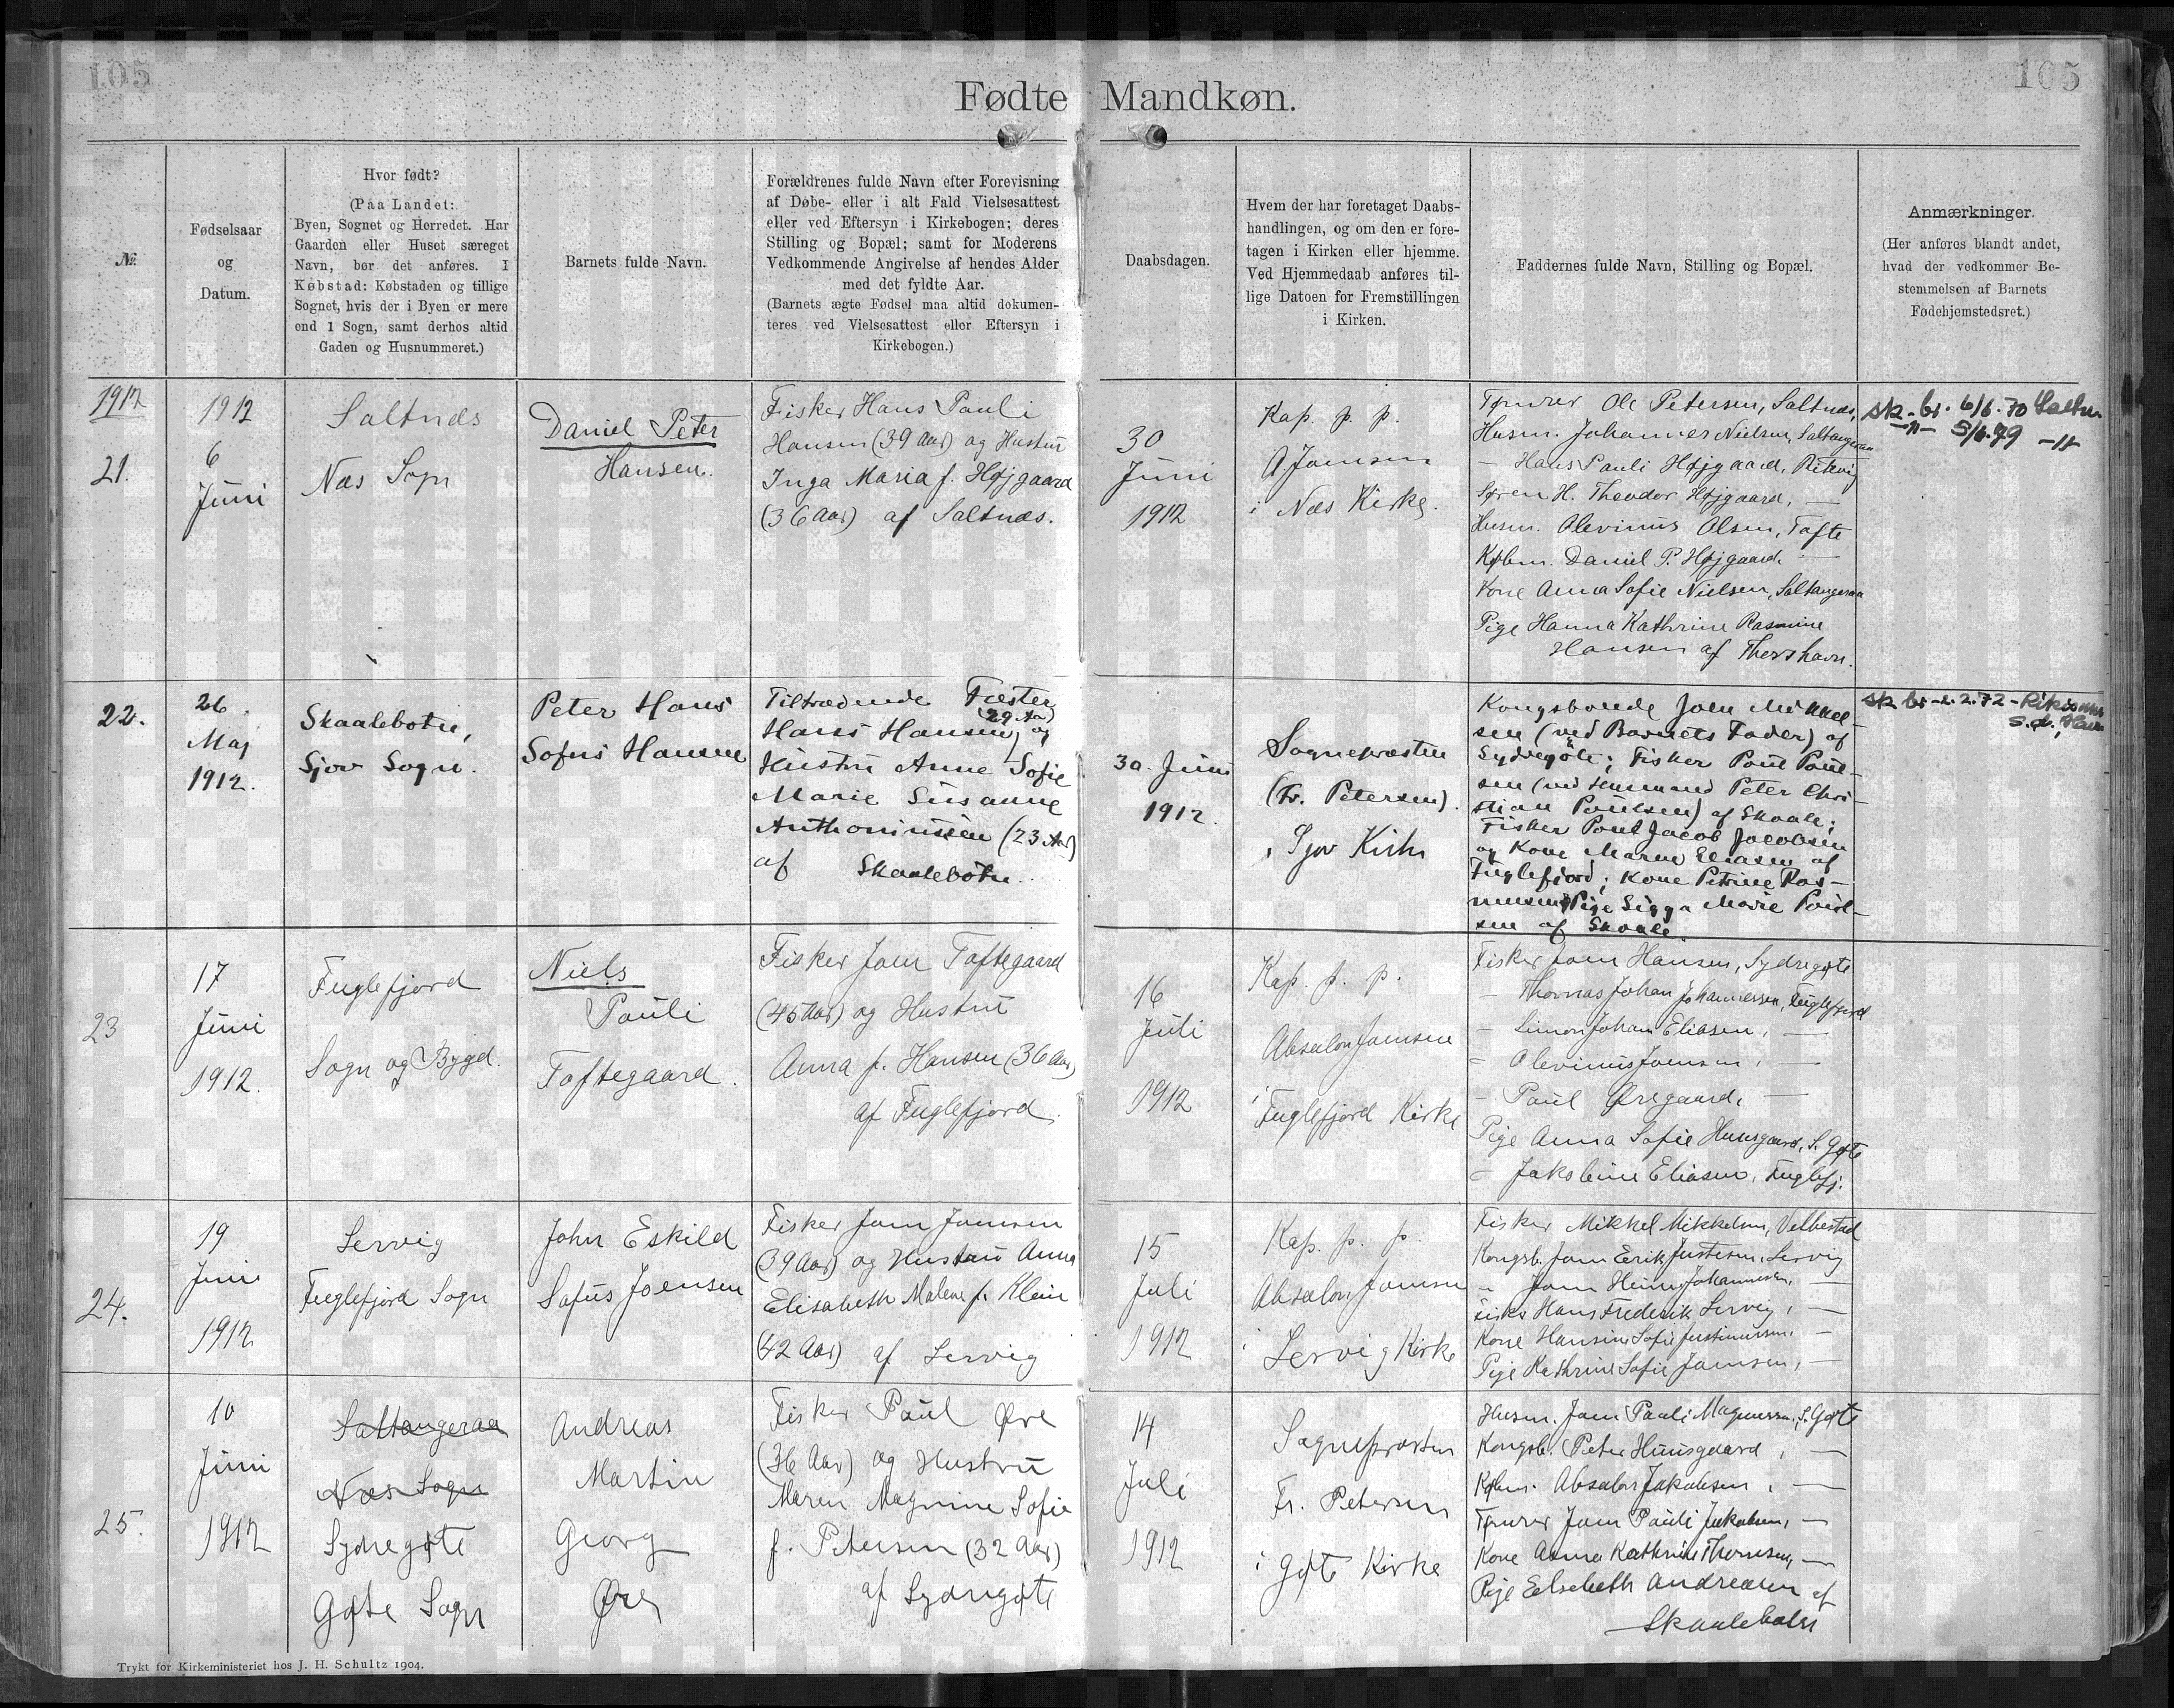 105
105
Fødte Mandkøn.
№
Fødselsaar
og
Datum.
Hvor født?
(Paa Landet:
Byen, Sognet og Herredet. Har
Gaarden eller Huset særeget
Navn, bør det anføres. I
Købstad: Købstaden og tillige
Sognet, hvis der i Byen er mere
end 1 Sogn, samt derhos altid
Gaden og Husnummeret.)
Barnets fulde Navn.
Forældrenes fulde Navn efter Forevisning
af Døbe- eller i alt Fald Vielsesattest
eller ved Eftersyn i Kirkebogen; deres
Stilling og Bopæl; samt for Moderens
Vedkommende Angivelse af hendes Alder
med det fyldte Aar.
(Barnets ægte Fødsel maa altid dokumen-
teres ved Vielsesattest eller Eftersyn i
Kirkebogen.)
Daabsdagen.
Hvem der har foretaget Daabs-
handlingen, og om den er fore-
tagen i Kirken eller hjemme.
Ved Hjemmedaab anføres til-
lige Datoen for Fremstillingen
i Kirken.
Faddernes fulde Navn, Stilling og Bopæl.
Anmærkninger.
(Her anføres blandt andet,
hvad der vedkommer Be-
stemmelsen af Barnets
Fødehjemstedsret.)
1912
21.
1912
6
Juni
Saltnæs
Næs Sogn
Daniel Peter
Hansen.
Fisker Hans Pauli
Hansen (39 Aar) og Hustru
Inga Maria f. Højgaard
(36 Aar) af Saltnæs.
30
Juni
1912
Kap. p. p.
A. Joensen
i Næs Kirke.
Tømrer Ole Petersen, Saltnæs,
Husm. Johannes Nielsen, Saltangeraa
— Hans Pauli Højgaard, Ritevig
Søren H. Theodor Højgaard, —
Husm. Olevinus Olsen, Tofte
Købm. Daniel P. Højgaard, —
Kone Anna Sofie Nielsen, Saltangeraa
Pige Hanna Kathrine Rasmine
Hansen af Thorshavn.
sk. br. 6/6.70
—"— 5/6.79 —"—
22.
26.
Maj
1912.
Skaalebotn,
Sjov Sogn.
Peter Hans
Sofus Hansen
Tiltrædende Fæster
Hans Hansen (29 Aa) og
Hustru Anne Sofie
Marie Susanne
Anthoniussen (23 Aar)
af Skaalebotn.
30. Juni
1912.
Sognepræsten
(Fr. Petersen).
i Sjov Kirke
Kongsbonde Joen Mikkel-
sen (ved Barnets Fader) af
Sydregøte; Fisker Poul Poul-
sen (ved Husmand Peter Chri-
stian Poulsen) af Skaale;
Fisker Poul Jacob Jacobsen
og Kone Maren Eliasen af
Fuglefjord; Kone Petrine Ras-
mussen, Pige Sigga Marie Poul-
sen af Skaale.
sk br - 2.2.72 -
23
17
Juni
1912.
Fuglefjord
Sogn og Bygd.
Niels
Pauli
Toftegaard.
Fisker Joen Toftegaard
(45 Aar) og Hustru
Anna f. Hansen (36 Aar)
af Fuglefjord.
16
Juli
1912
Kap. p. p.
Absalon Joensen
i
Fuglefjord Kirke
Fisker Joen Hansen, Sydregøte
— Thomas Johan Johannessen, Fuglefjord
— Simon Johan Eliasen, —
— Olevinus Joensen, —
— Paul Øregaard, —
Pige Anna Sofie Huusgaard, S. Gøte
— Jakobine Eliasen, Fuglefj.
24.
19
Juni
1912
Lervig
Fuglefjord Sogn
John Eskild
Sofus Joensen
Fisker Joen Joensen
(39 Aar) og Hustru Anna
Elisabeth Malene f. Klein
(42 Aar) af Lervig
15
Juli
1912
Kap. p. p.
Absalon Joensen
i Lervig Kirke
Fisker Mikkel Mikkelsen, Velbestad
Kongsb. Joen Erik Justesen, Lervig
" Joen Heine Johannesen, —
Fisker Hans Frederik Lervig, —
Kone Hansine Sofie Justinussen, —
Pige Kathrine Sofie Joensen, —
25.
10
Juni
1912
Saltangeraa
Næs Sogn
Sydregøte
Gøte Sogn
Andreas
Martin
Georg
Øre
Fisker Paul Øre
(36 Aar) og Hustru
Maren Magnine Sofie
f. Petersen (32 Aar)
af Sydregøte
14
Juli
1912
Sognepræsten
Fr. Petersen
i Gøte Kirke
Husm. Joen Pauli Magnussen, S. Gøte
Kongsb. Peter Huusgaard, —
Købm. Absalon Jakobsen, —
Tømrer Joen Pauli Jakobsen, —
Kone Anna Kathrine Thomsen, —
Pige Elsebeth Andreasen af
Skaalebotn
Trykt for Kirkeministeriet hos J. H. Schultz 1904.